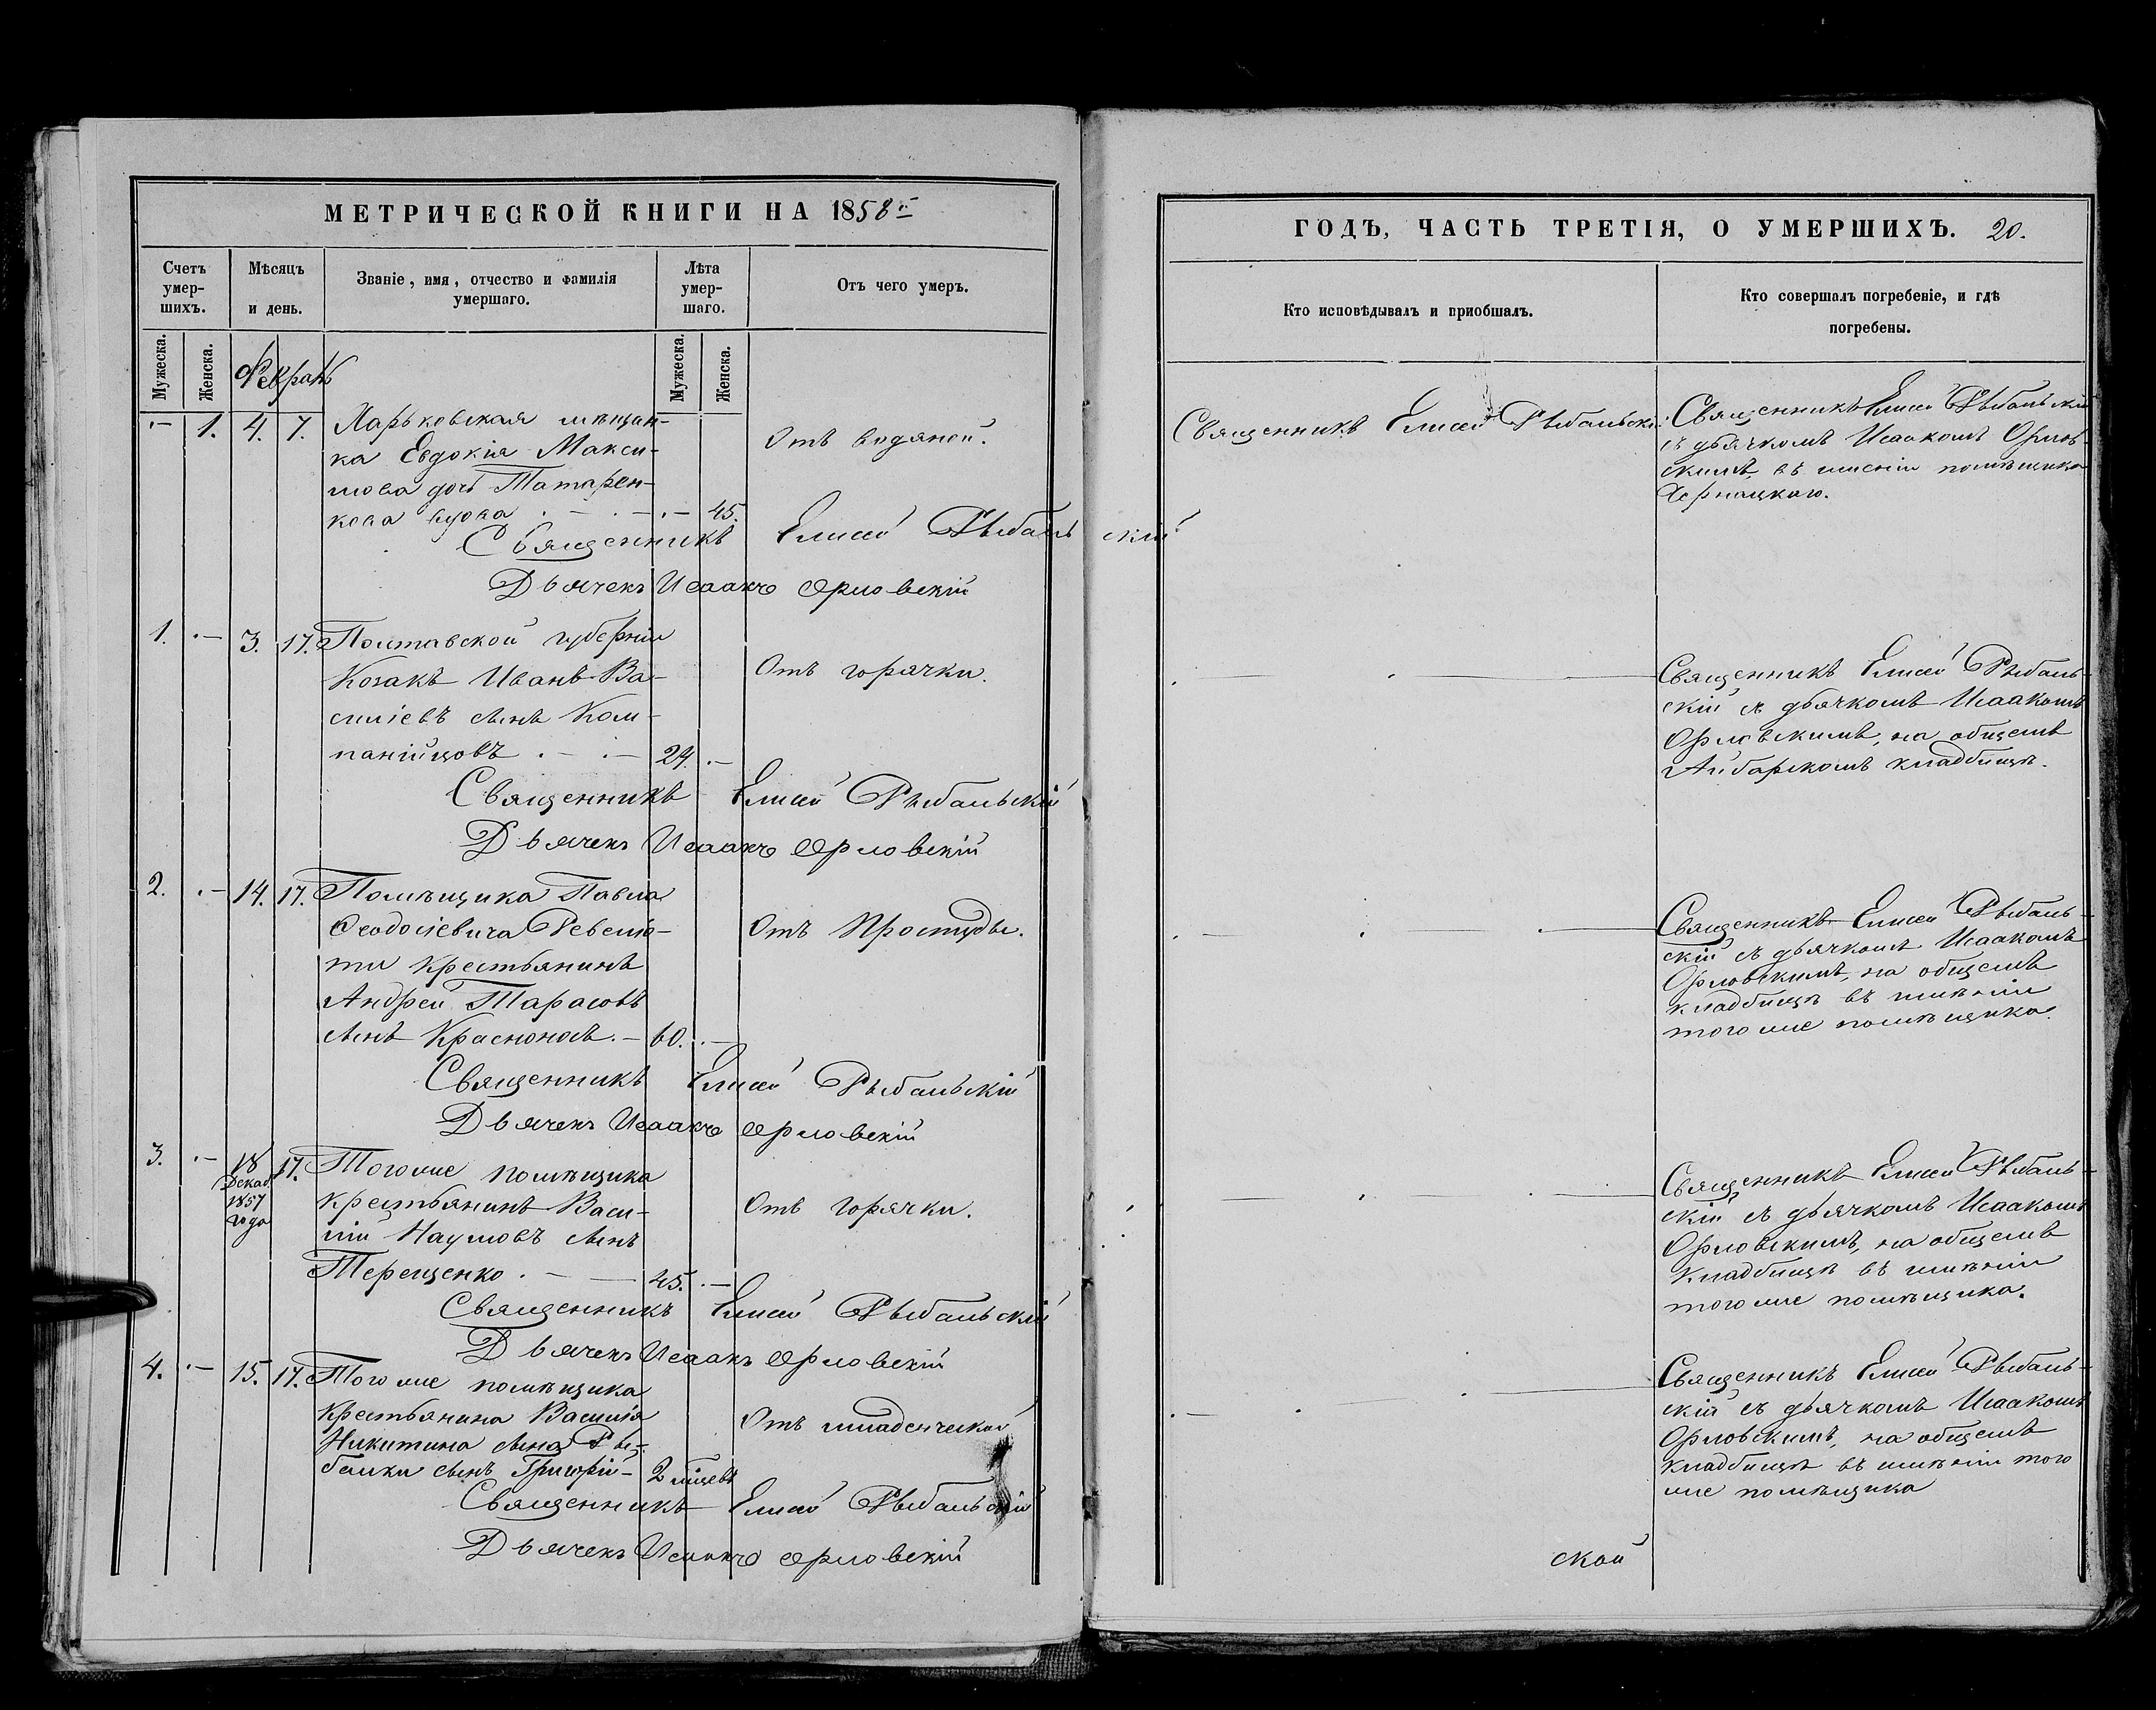 МЕТРИЧЕСКОЙ КНИГИ НА 1858й
Счетъ умер-шихъ.
Мѣсяцъ и день.
Званіе, имя, отчество и фамилія умершаго.
Лѣта умер-шаго.
Отъ чего умеръ.
Мужеска.
Женска.
Мужеска.
Женска.
Февраль
·— 1. 4. 7. Харьковская мѣщан-
ка Евдокія Макси-
мова дочь Татарен-
кова вдова · — · — · — 45.
Отъ водяной.
Священникъ Елисей Рыбальскій
Дьячекъ Исаакъ Орловскій
1. ·— 3. 17. Полтавской губерніи
Козакъ Иванъ Ва-
силіевъ сынъ Ком-
панійцовъ · — · — 24. ·—
Отъ горячки.
Священникъ Елисей Рыбальскій
Дьячекъ Исаакъ Орловскій
2. ·— 14. 17. Помѣщика Павла
Ѳеодосіевича Ревелió-
ти крестьянинъ
Андрей Тарасовъ
сынъ Красноносъ. — 60. ·—
Отъ Простуды.
Священникъ Елисей Рыбальскій
Дьячекъ Исаакъ Орловскій
3. ·— 18 Декаб. 1857 года 17. Тогоже помѣщика
крестьянинъ Васи-
лій Наумовъ сынъ
Терещенко · — — 45. ·—
Отъ горячки.
Священникъ Елисей Рыбальскій
Дьячекъ Исаакъ Орловскій
4. ·— 15. 17. Тогоже помѣщика
крестьянина Василія
Никитина сына Ры-
балки сынъ Григорій — 2 мѣцевъ
Отъ младенческой
Священникъ Елисей Рыбальскій
Дьячекъ Исаакъ Орловскій
ГОДЪ, ЧАСТЬ ТРЕТІЯ, О УМЕРШИХЪ. 20.
Кто исповѣдывалъ и приобщалъ.
Кто совершалъ погребеніе, и гдѣ погребены.
Священникъ Елисей Рыбальскій
Священникъ Елисей Рыбальскій
съ дьячкомъ Исаакомъ Орлов-
скимъ, въ имѣніи помѣщика
Священникъ Елисей Рыбаль-
скій съ дьячкомъ Исаакомъ
Орловскимъ, на общемъ
Айбарскомъ кладбищѣ.
Священникъ Елисей Рыбаль-
скій съ дьячкомъ Исаакомъ
Орловскимъ, на общемъ
кладбищѣ въ имѣніи
того же помѣщика.
Священникъ Елисей Рыбаль-
скій съ дьячкомъ Исаакомъ
Орловскимъ, на общемъ
Кладбищѣ въ имѣніи
того же помѣщика.
Священникъ Елисей Рыбаль-
скій съ дьячкомъ Исаакомъ
Орловскимъ, на общемъ
кладбищѣ въ имѣніи того
же помѣщика
ской